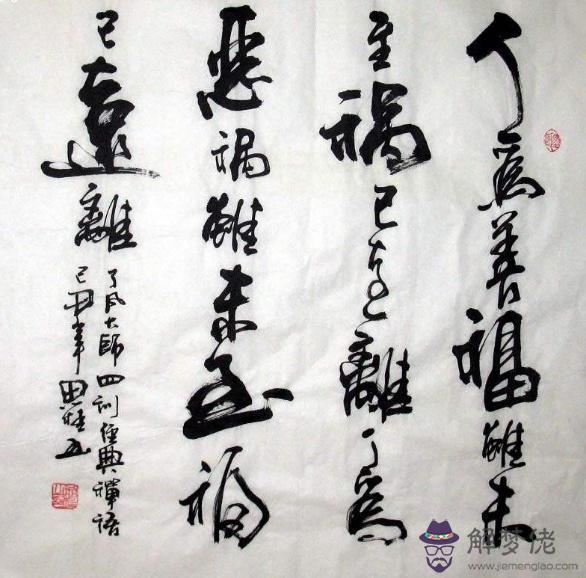 人為善福雖未
至禍已遠離人為
惡禍雖未至福
已遠離
了凡大師四訓經典禪語
己丑年思雄書
解梦佬
www.jiemenglao.com